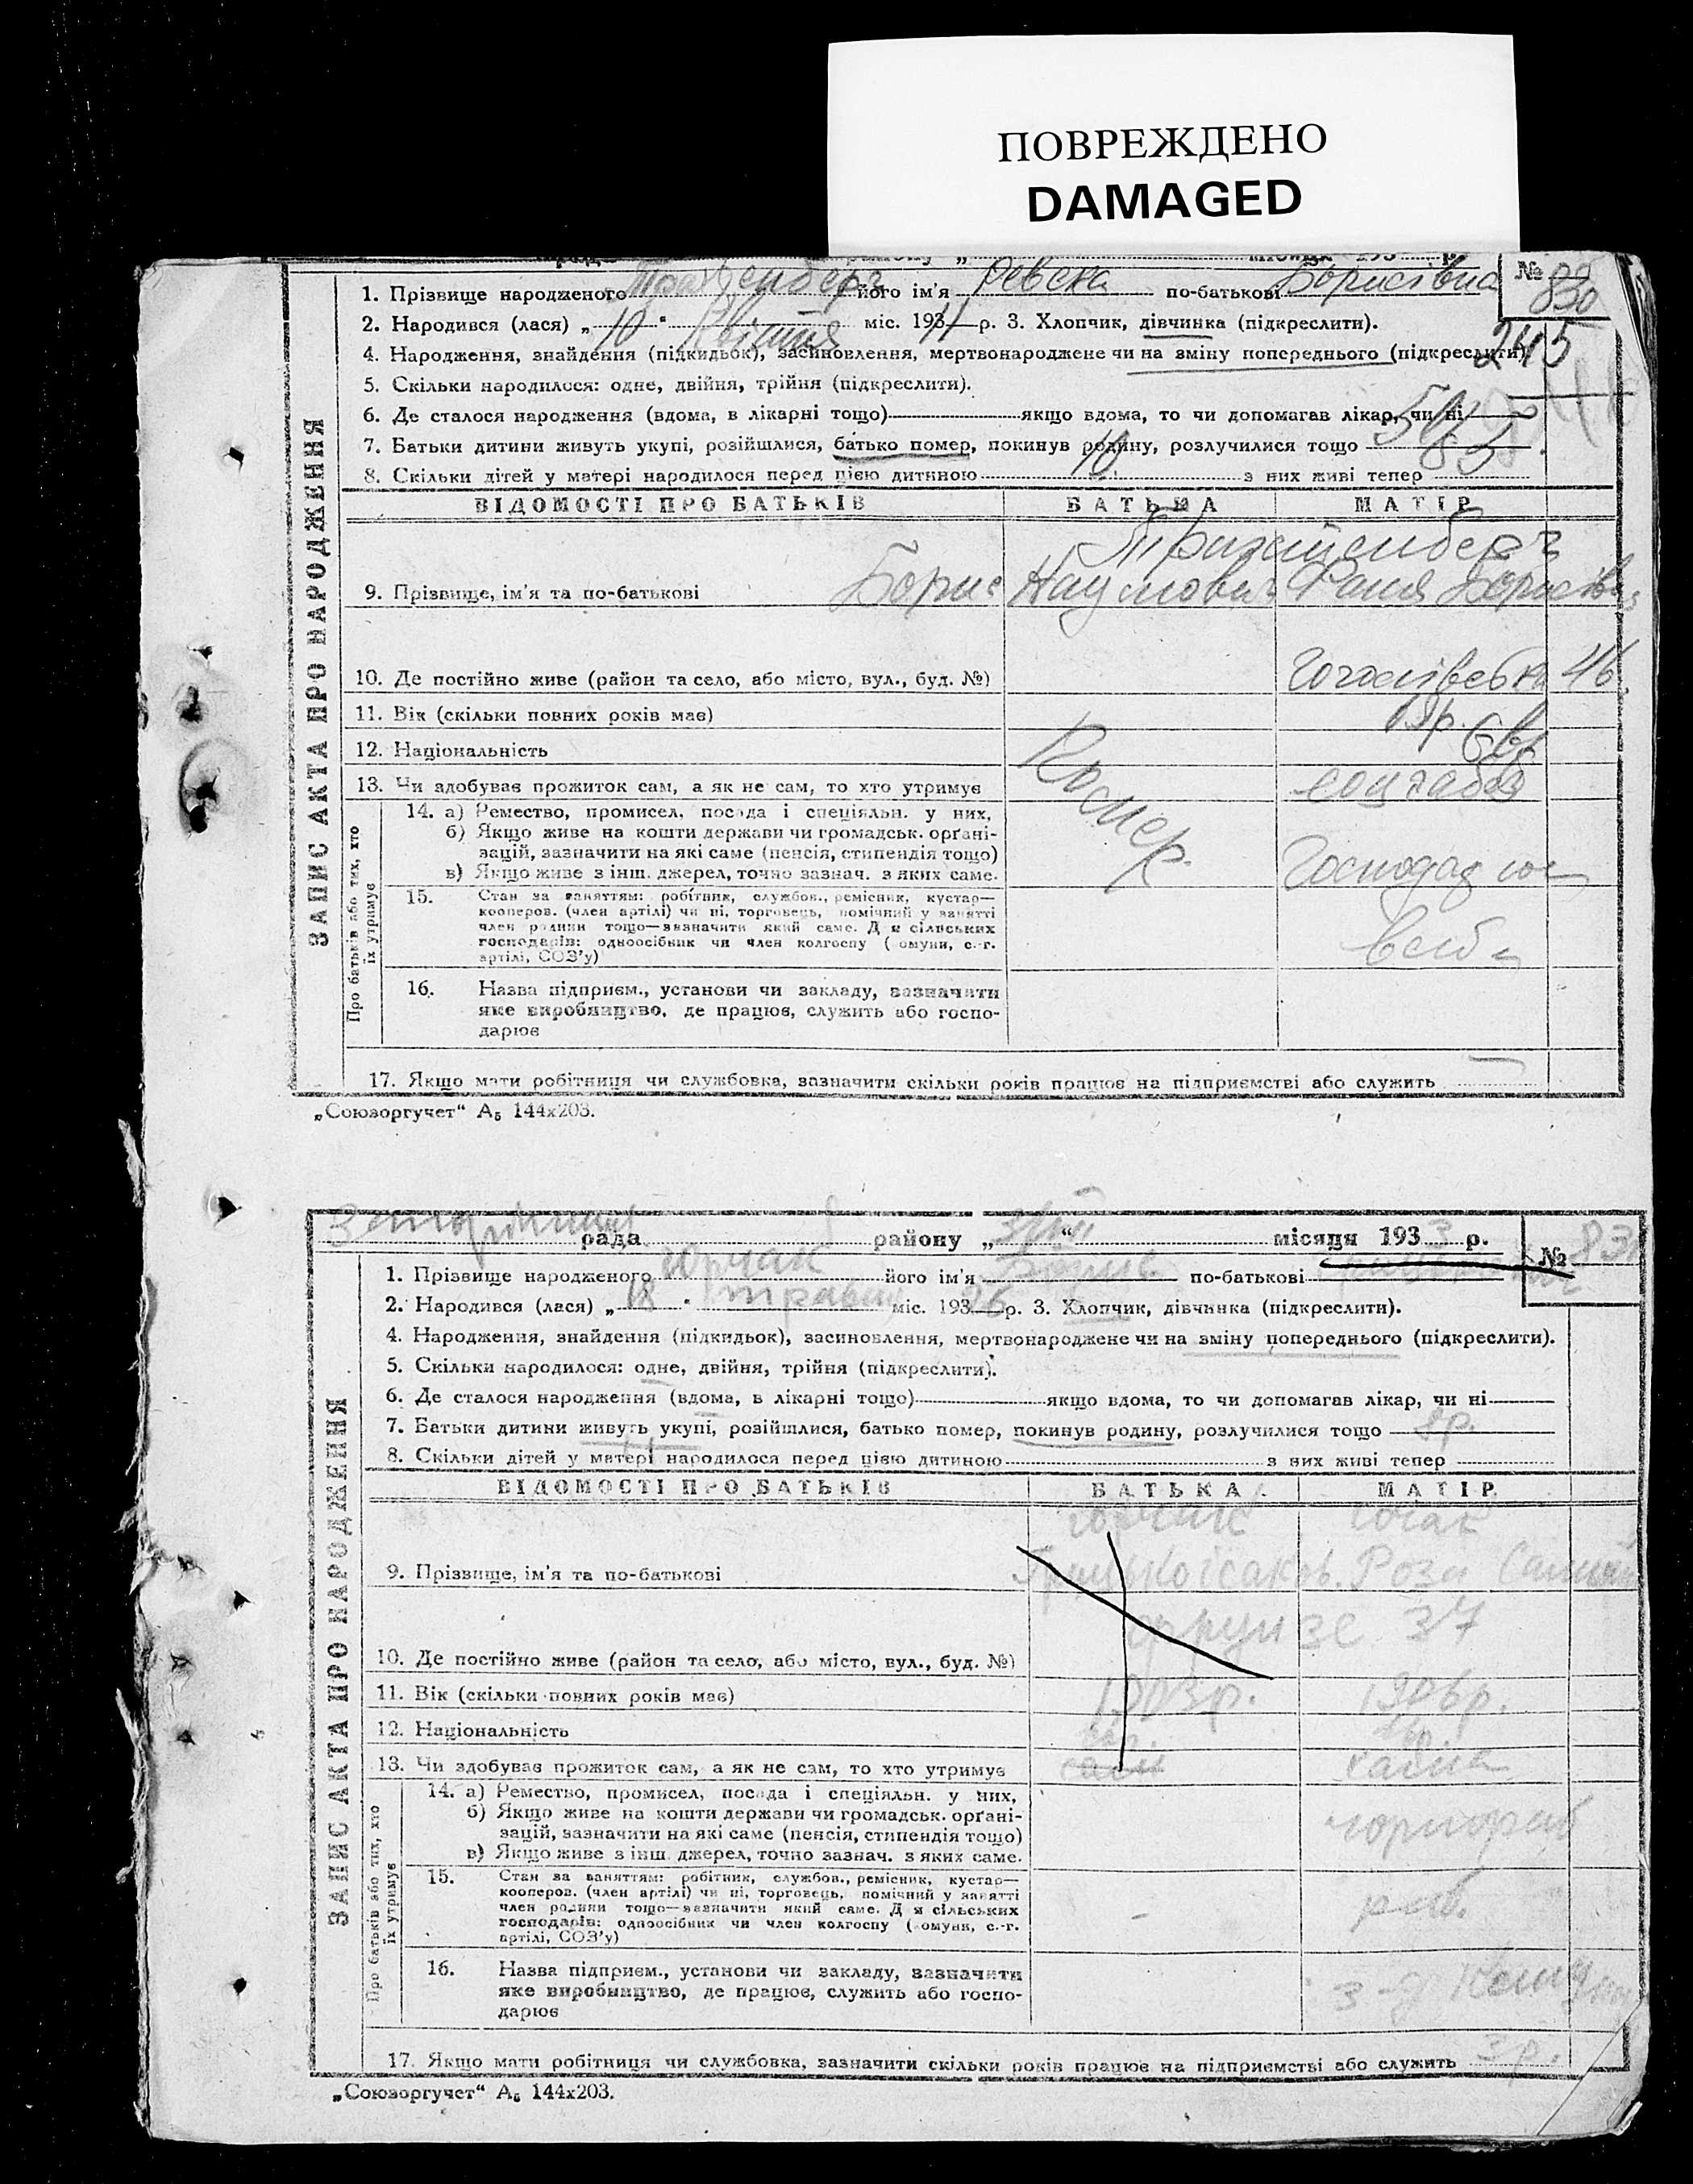 ПОВРЕЖДЕНО
DAMAGED
№ 830
1. Прізвище народженого його ім'я Ревека по-батькові Борисівна
2. Народився (лася) „ 10 " Квітня міс. 193 р. 3. Хлопчик, дівчинка (підкреслити).
245
4. Народження, знайдення (підкидьок), засиновлення, мертвонароджене чи на зміну попереднього (підкреслити)
5. Скільки народилося: одне, двійня, трійня (підкреслити).
6. Де сталося народження (вдома, в лікарні тощо) якщо вдома, то чи допомагав лікар, чи ні
7. Батьки дитини живуть укупі, розійшлися, батько помер, покинув родину, розлучилися тощо
8. Скільки дітей у матері народилося перед цією дитиною з них живі тепер
ВІДОМОСТІ ПРО БАТЬКІВ БАТЬКА МАТІР
9. Прізвище, ім'я та по-батькові Борис Наумович Фаня Борисівна
10. Де постійно живе (район та село, або місто, вул., буд. №) Гоголівська 46
11. Вік (скільки повних років має)
12. Національність Євр
13. Чи здобуває прожиток сам, а як не сам, то хто утримує соцзабез
Помер.
14. а) Ремество, промисел, посада і спеціяльн. у них,
б) Якщо живе на кошти держави чи громадськ. орґані-
зацій, зазначити на які саме (пенсія, стипендія тощо)
в) Якщо живе з інш. джерел, точно зазнач. з яких саме.
15. Стан за заняттям: робітник, службов., ремісник, кустар—
кооперов. (член артілі) чи ні, торговець, помічний у занятті
член родини тощо—зазначити який саме. Для сільських
господарів: одноосібник чи член колгоспу (комуни, с.-г.
артілі, СОЗ'у)
16. Назва підприєм., установи чи закладу, зазначити
яке виробництво, де працює, служить або госпо-
дарює
17. Якщо мати робітниця чи службовка, зазначити скільки років працює на підприємстві або служить
ЗАПИС АКТА ПРО НАРОДЖЕННЯ
Про батьків або тих, хто
їх утримує
„Союзоргучет“ А₅ 144х203.
рада району „ “ місяця 1933 р.
№ 831
1. Прізвище народженого Юрчак його ім'я Борис по-батькові
2. Народився (лася) „ 18 " травня міс. 1926 р. 3. Хлопчик, дівчинка (підкреслити).
4. Народження, знайдення (підкидьок), засиновлення, мертвонароджене чи на зміну попереднього (підкреслити).
5. Скільки народилося: одне, двійня, трійня (підкреслити).
6. Де сталося народження (вдома, в лікарні тощо) якщо вдома, то чи допомагав лікар, чи ні
7. Батьки дитини живуть укупі, розійшлися, батько помер, покинув родину, розлучилися тощо
8. Скільки дітей у матері народилося перед цією дитиною з них живі тепер
ВІДОМОСТІ ПРО БАТЬКІВ БАТЬКА МАТІР
9. Прізвище, ім'я та по-батькові Роза
10. Де постійно живе (район та село, або місто, вул., буд. №) Фрунзе 37
11. Вік (скільки повних років має) 1903р. 1906р.
12. Національність євр. євр.
13. Чи здобуває прожиток сам, а як не сам, то хто утримує сам сама
14. а) Ремество, промисел, посада і спеціяльн. у них, чорнороб
б) Якщо живе на кошти держави чи громадськ. орґані-
зацій, зазначити на які саме (пенсія, стипендія тощо)
в) Якщо живе з інш. джерел, точно зазнач. з яких саме.
15. Стан за заняттям: робітник, службов., ремісник, кустар— роб.
кооперов. (член артілі) чи ні, торговець, помічний у занятті
член родини тощо—зазначити який саме. Для сільських
господарів: одноосібник чи член колгоспу (комуни, с.-г.
артілі, СОЗ'у)
16. Назва підприєм., установи чи закладу, зазначити з-д
яке виробництво, де працює, служить або госпо-
дарює
17. Якщо мати робітниця чи службовка, зазначити скільки років працює на підприємстві або служить 3р.
ЗАПИС АКТА ПРО НАРОДЖЕННЯ
Про батьків або тих, хто
їх утримує
„Союзоргучет“ А₅ 144х203.